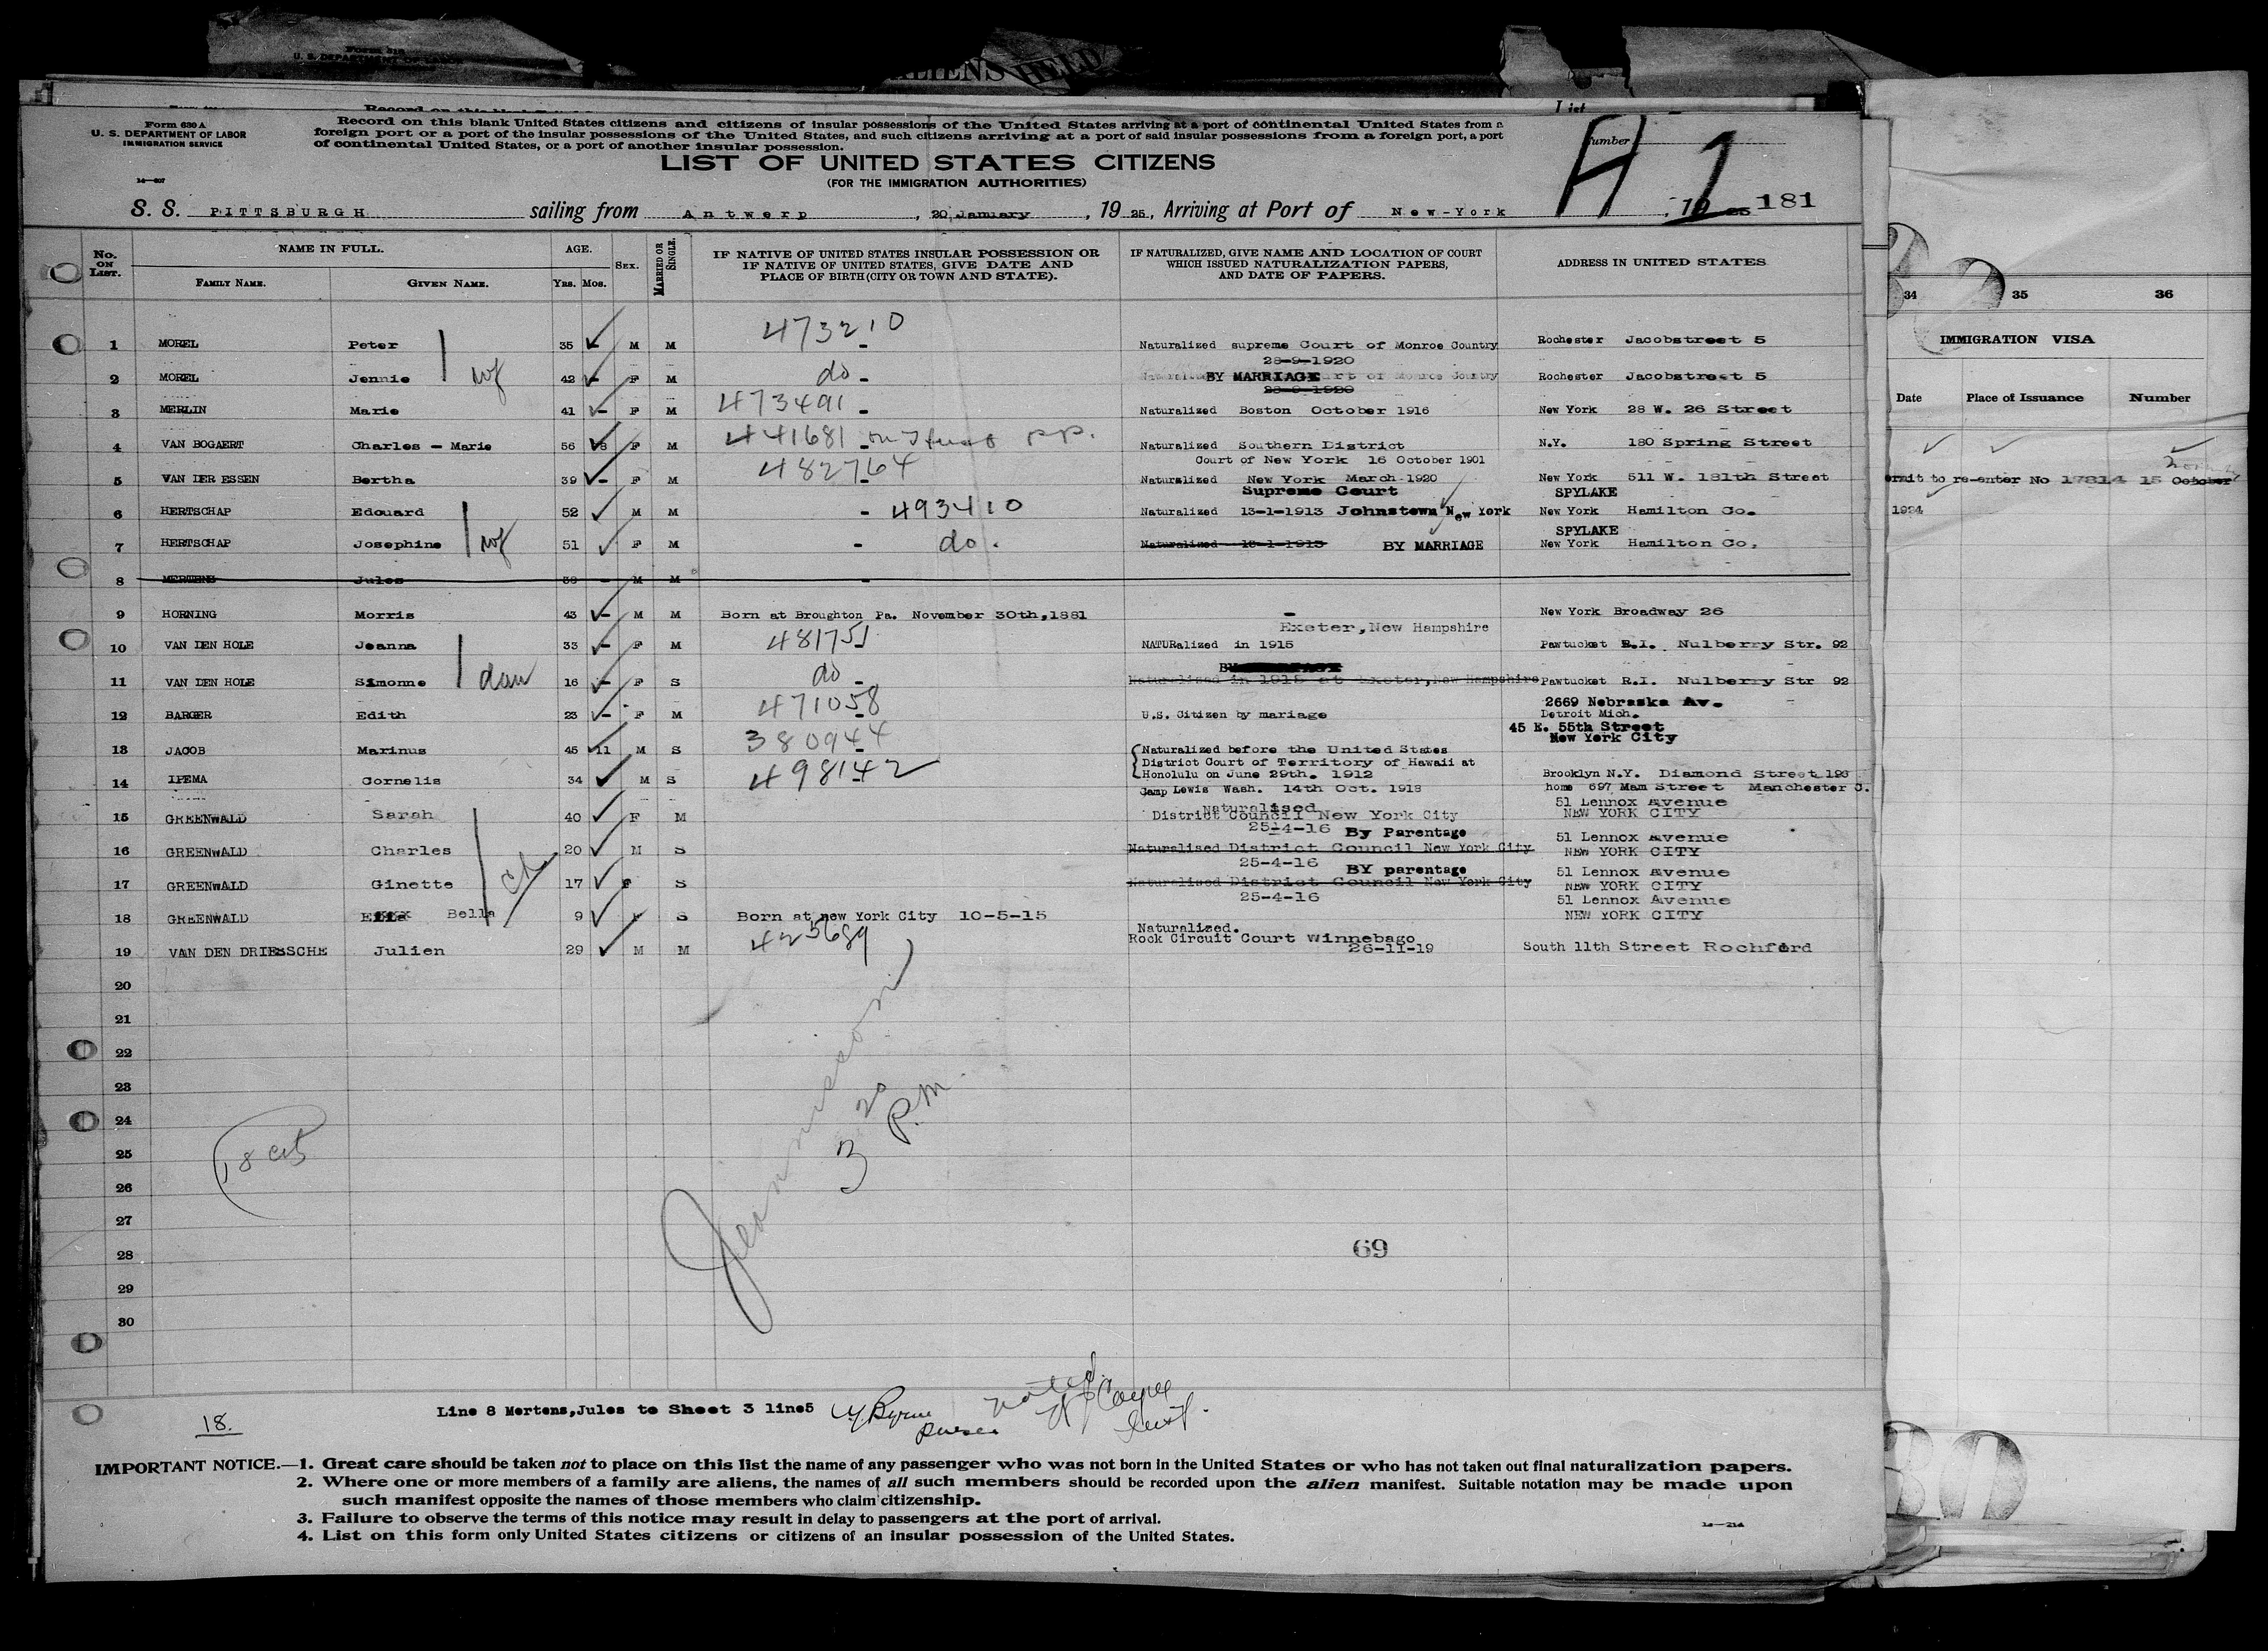 Form 630 A
U. S. DEPARTMENT OF LABOR
IMMIGRATION SERVICE
Record on this blank United States citizens and citizens of insular possessions of the United States arriving at a port of continental United States from a
foreign port or a port of the insular possessions of the United States, and such citizens arriving at a port of said insular possessions from a foreign port, a port
of continental United States, or a port of another insular possession.
LIST OF UNITED STATES CITIZENS
(FOR THE IMMIGRATION AUTHORITIES)
H 1
181
S. S. PITTSBURGH sailing from Antwerp, 20 January, 1925, Arriving at Port of New-York, 19
No. ON LIST. NAME IN FULL. AGE. SEX. MARRIED OR SINGLE. IF NATIVE OF UNITED STATES INSULAR POSSESSION OR IF NATIVE OF UNITED STATES, GIVE DATE AND PLACE OF BIRTH (CITY OR TOWN AND STATE). IF NATURALIZED, GIVE NAME AND LOCATION OF COURT WHICH ISSUED NATURALIZATION PAPERS, AND DATE OF PAPERS. ADDRESS IN UNITED STATES
FAMILY NAME. GIVEN NAME. YRS. MOS.
1 MOREL Peter 35 - M M 473210 - Naturalized supreme Court of Monroe Country 28-9-1920 Rochester Jacobstreet 5
2 MOREL Jennie wf 42 - F M do - BY MARRIAGE 28-9-1920 Rochester Jacobstreet 5
3 MERLIN Marie 41 - F M 473491 - Naturalized Boston October 1916 New York 28 W. 26 Street
4 VAN BOGAERT Charles - Marie 56 8 F M 441681 - pp. Naturalized Southern District Court of New York 16 October 1901 N.Y. 180 Spring Street
5 VAN DER ESSEN Bertha 39 - F M 482764 - Naturalized New York March 1920 New York 511 W. 181th Street
6 HERTSCHAP Edouard 52 M M - 493410 Supreme Court Naturalized 13-1-1913 Johnstown New York SPYLAKE New York Hamilton Co.
7 HERTSCHAP Josephine wf 51 F M - do. Naturalized 13-1-1913 BY MARRIAGE SPYLAKE New York Hamilton Co,
8 MERTENS Jules 38 - M M -
9 HORNING Morris 43 - M M Born at Broughton Pa. November 30th,1881 - New York Broadway 26
10 VAN DEN HOLE Jeanna 33 - F M 481751 Exeter,New Hampshire NATURalized in 1915 Pawtucket R.I. Nulberry Str. 92
11 VAN DEN HOLE Simonne dau 16 - F S do - Naturalized in 1915 at Exeter,New Hampshire Pawtucket R.I. Nulberry Str 92
12 BARGER Edith 23 - F M 471058 - U.S. Citizen by mariage 2669 Nebraska Av. Detroit Mich.
13 JACOB Marinus 45 11 M S 380944 - Naturalized before the United States District Court of Territory of Hawaii at Honolulu on June 29th. 1912 45 E. 55th Street New York City
14 IPEMA Cornelis 34 M S 498142 Camp Lewis Wash. 14th Oct. 1918 Brooklyn N.Y. Diamond Street 193 home 697 Mam Street Manchester
15 GREENWALD Sarah 40 F M Naturalised District Council New York City 25-4-16 51 Lennox Avenue NEW YORK CITY
16 GREENWALD Charles 20 M S By Parentage Naturalised District Council New York City 25-4-16 51 Lennox Avenue NEW YORK CITY
17 GREENWALD Ginette ch 17 F S BY parentage Naturalised District Council New York City 25-4-16 51 Lennox Avenue NEW YORK CITY
18 GREENWALD Bella 9 F S Born at new York City 10-5-15 51 Lennox Avenue NEW YORK CITY
19 VAN DEN DRIESSCHE Julien 29 M M 425689 Naturalized. Rock Circuit Court Winnebago 26-11-19 South 11th Street Rochford
20
21
22
23
24
25
26
27
28
29
30
18 cits
3 20 P.M.
69
18.
Line 8 Mertens,Jules to Sheet 3 line5 Byrne Purser noted
IMPORTANT NOTICE.—1. Great care should be taken not to place on this list the name of any passenger who was not born in the United States or who has not taken out final naturalization papers.
2. Where one or more members of a family are aliens, the names of all such members should be recorded upon the alien manifest. Suitable notation may be made upon
such manifest opposite the names of those members who claim citizenship.
3. Failure to observe the terms of this notice may result in delay to passengers at the port of arrival.
4. List on this form only United States citizens or citizens of an insular possession of the United States.
34 35 36
IMMIGRATION VISA
Date Place of Issuance Number
to re-enter No 17814 15 October
1924